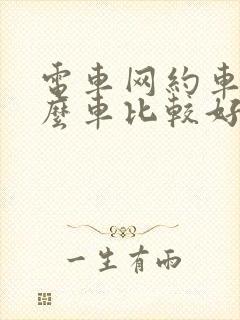 電車网約車
麼車比較好
一生有雨